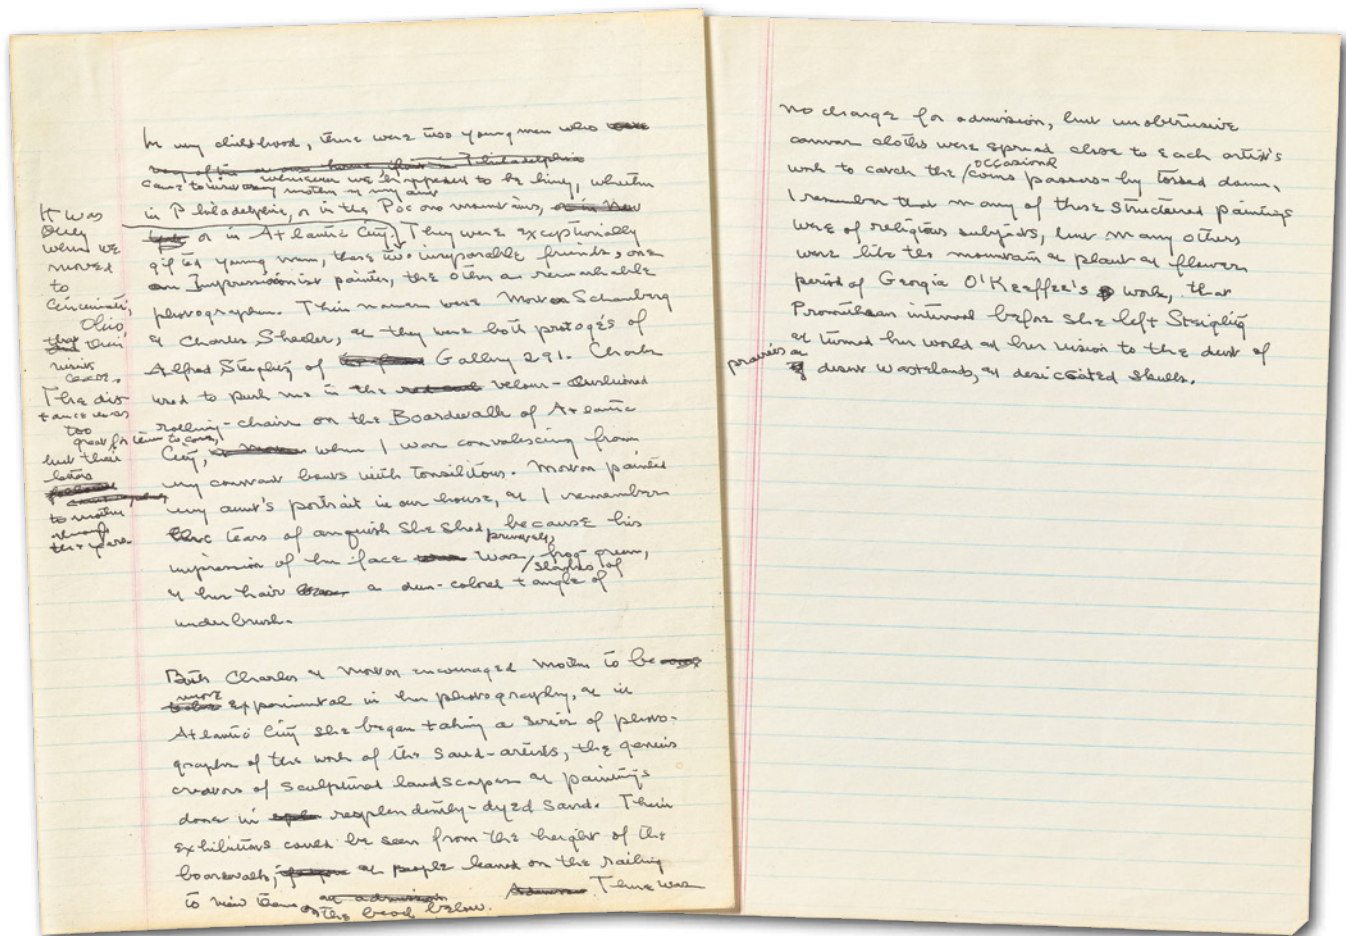 In my childhood, there were two young men who
came to visit my mother & my aunt whenever we happened to be living, whether
in Philadelphia, or in the Pocono mountains,
or in Atlantic City. They were exceptionally
gifted young men, those two inseparable friends, one
an Impressionist painter, the other a remarkable
photographer. Their names were Morton Schamberg
& Charles Sheeler, & they were both protogés of
Alfred Steiglitz of Gallery 291. Charles
used to push me in the velour-cushioned
rolling-chair on the Boardwalk of Atlantic
City, when I was convalescing from
my constant bouts with tonsilitous. Morton painted
my aunt's portrait in our house, & I remember
the tears of anguish she shed privately, because his
impression of her face was frog-green,
& her hair slashes of a dun-colored tangle of
underbrush.
It was
only
when we
moved
to
Cincinnati,
Ohio,
that their
visits
ceased.
The dis-
tance was
too
great for them to come,
but their
letters
to mother
through
the years.
Both Charles & Morton encouraged mother to be
more experimental in her photography, & in
Atlantic City she began taking a series of photo-
graphs of the work of the sand-artists, the genius
creators of sculptural landscapes & paintings
done in resplendently-dyed sand. Their
exhibitions could be seen from the height of the
boardwalk, as people leaned on the railing
to view them on the beach below. There was
no charge for admission, but unobtrusive
canvas cloths were spread close to each artist's
work to catch the occasional coins passers-by tossed down.
I remember that many of those structured paintings
were of religious subjects, but many others
were like the mountain & plant & flower
period of Georgia O'Keeffee's work, that
Promethean interval before she left Steiglitz
& turned her world & her vision to the dust of
prairies & desert wastelands, & desiccated skulls.